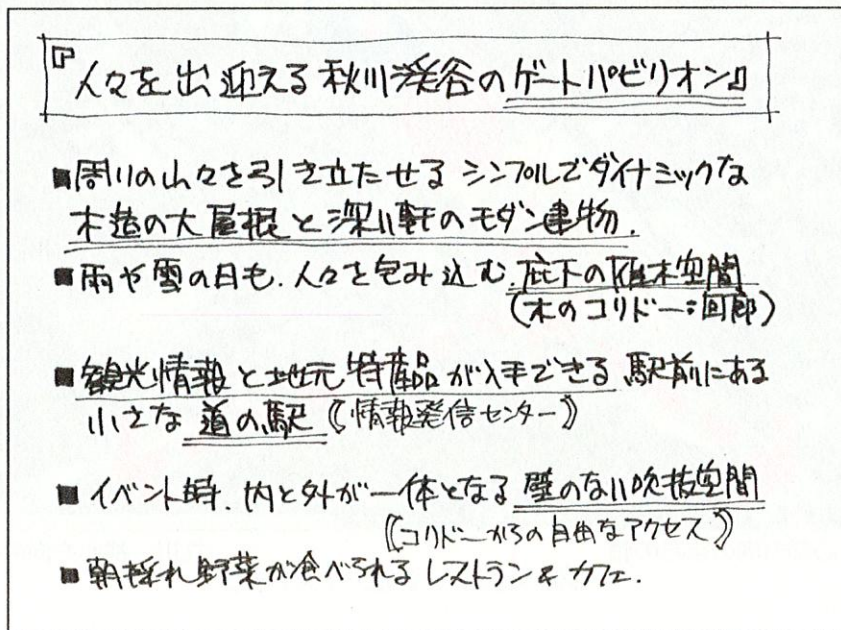 『人々を出迎える秋川渓谷のゲートパビリオン』
■周りの山々を引き立たせる シンプルでダイナミックな
木造の大屋根と深い軒のモダン建物.
■雨や雪の日も.人々を包み込む.庇下の雁木空間
(木のコリドー:回廊)
■観光情報と地元特産品が入手できる 駅前にある
小さな 道の駅《情報発信センター》
■イベント時.内と外が一体となる 壁のない吹抜空間
《コリドーからの自由なアクセス》
■朝採れ野菜が食べられる レストラン&カフェ.